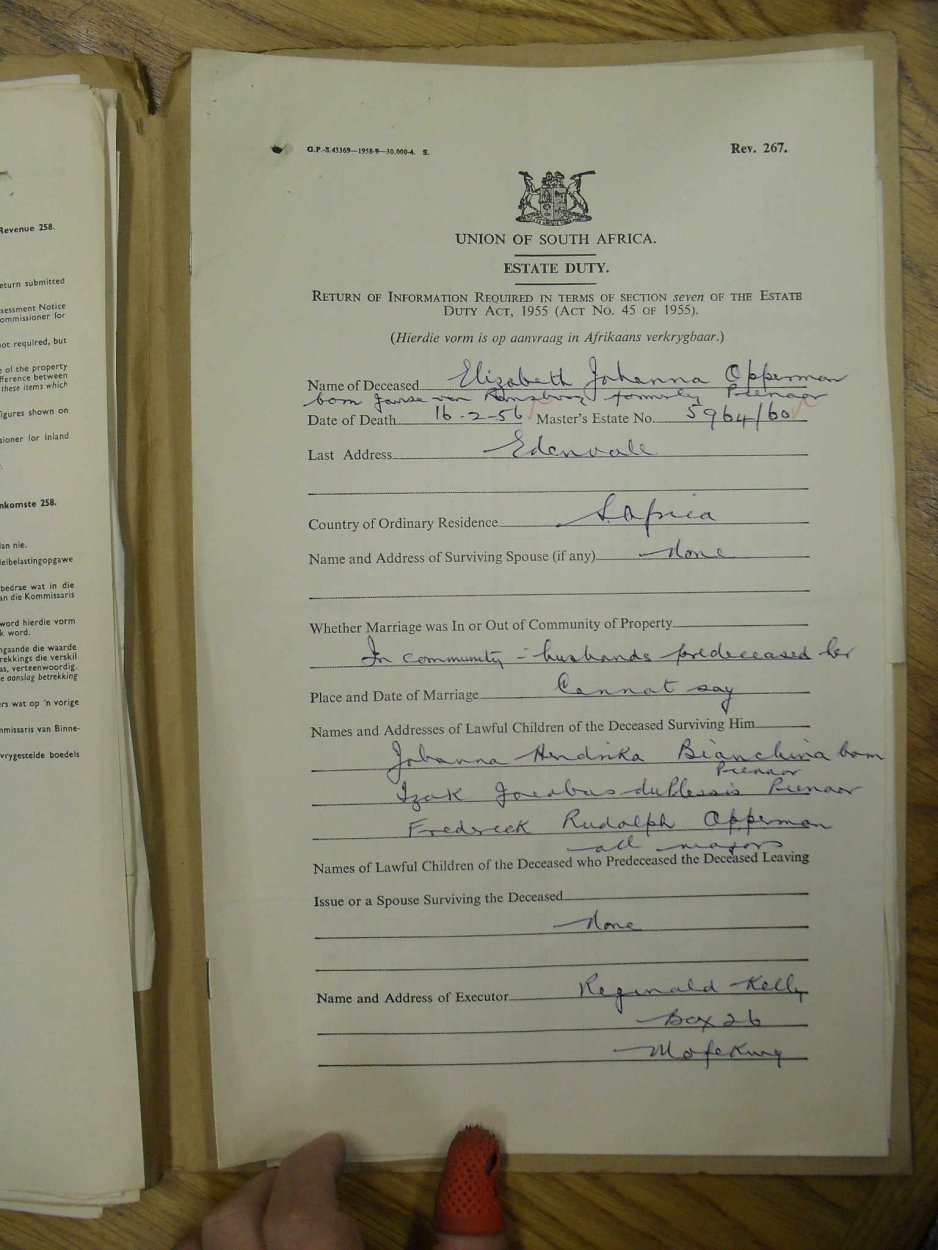 Revenue 258.
eturn submitted
sessment Notice
ommissioner for
ot required, but
e of the property
fference between
these items which
figures shown on
sioner for Inland
nkomste 258.
an nie.
elbelastingopgawe
bedrae wat in die
an die Kommissaris
word hierdie vorm
k word.
ngaande die waarde
rekkings die verskil
as, verteenwoordig.
e aanslag betrekking
ers wat op 'n vorige
mmissaris van Binne-
vrygestelde boedels
G.P.-S.43369—1958-9—30,000-4. S.
Rev. 267.
UNION OF SOUTH AFRICA.
ESTATE DUTY.
RETURN OF INFORMATION REQUIRED IN TERMS OF SECTION seven OF THE ESTATE
DUTY ACT, 1955 (ACT NO. 45 OF 1955).
(Hierdie vorm is op aanvraag in Afrikaans verkrygbaar.)
Name of Deceased Elizabeth Johanna Opperman
born Janse van Rensburg formerly Pienaar
Date of Death 16-2-56 Master's Estate No. 5964/60
Last Address Edenvale
Country of Ordinary Residence S. Africa
Name and Address of Surviving Spouse (if any) none
Whether Marriage was In or Out of Community of Property
In community - husbands predeceased her
Place and Date of Marriage Cannot say
Names and Addresses of Lawful Children of the Deceased Surviving Him
Johanna Hendrika Bianchina born
Pienaar
Izak Jacobus duPlessis Pienaar
Frederick Rudolph Opperman
all majors
Names of Lawful Children of the Deceased who Predeceased the Deceased Leaving
Issue or a Spouse Surviving the Deceased
None
Name and Address of Executor Reginald Kelly
Box 26
Mafeking